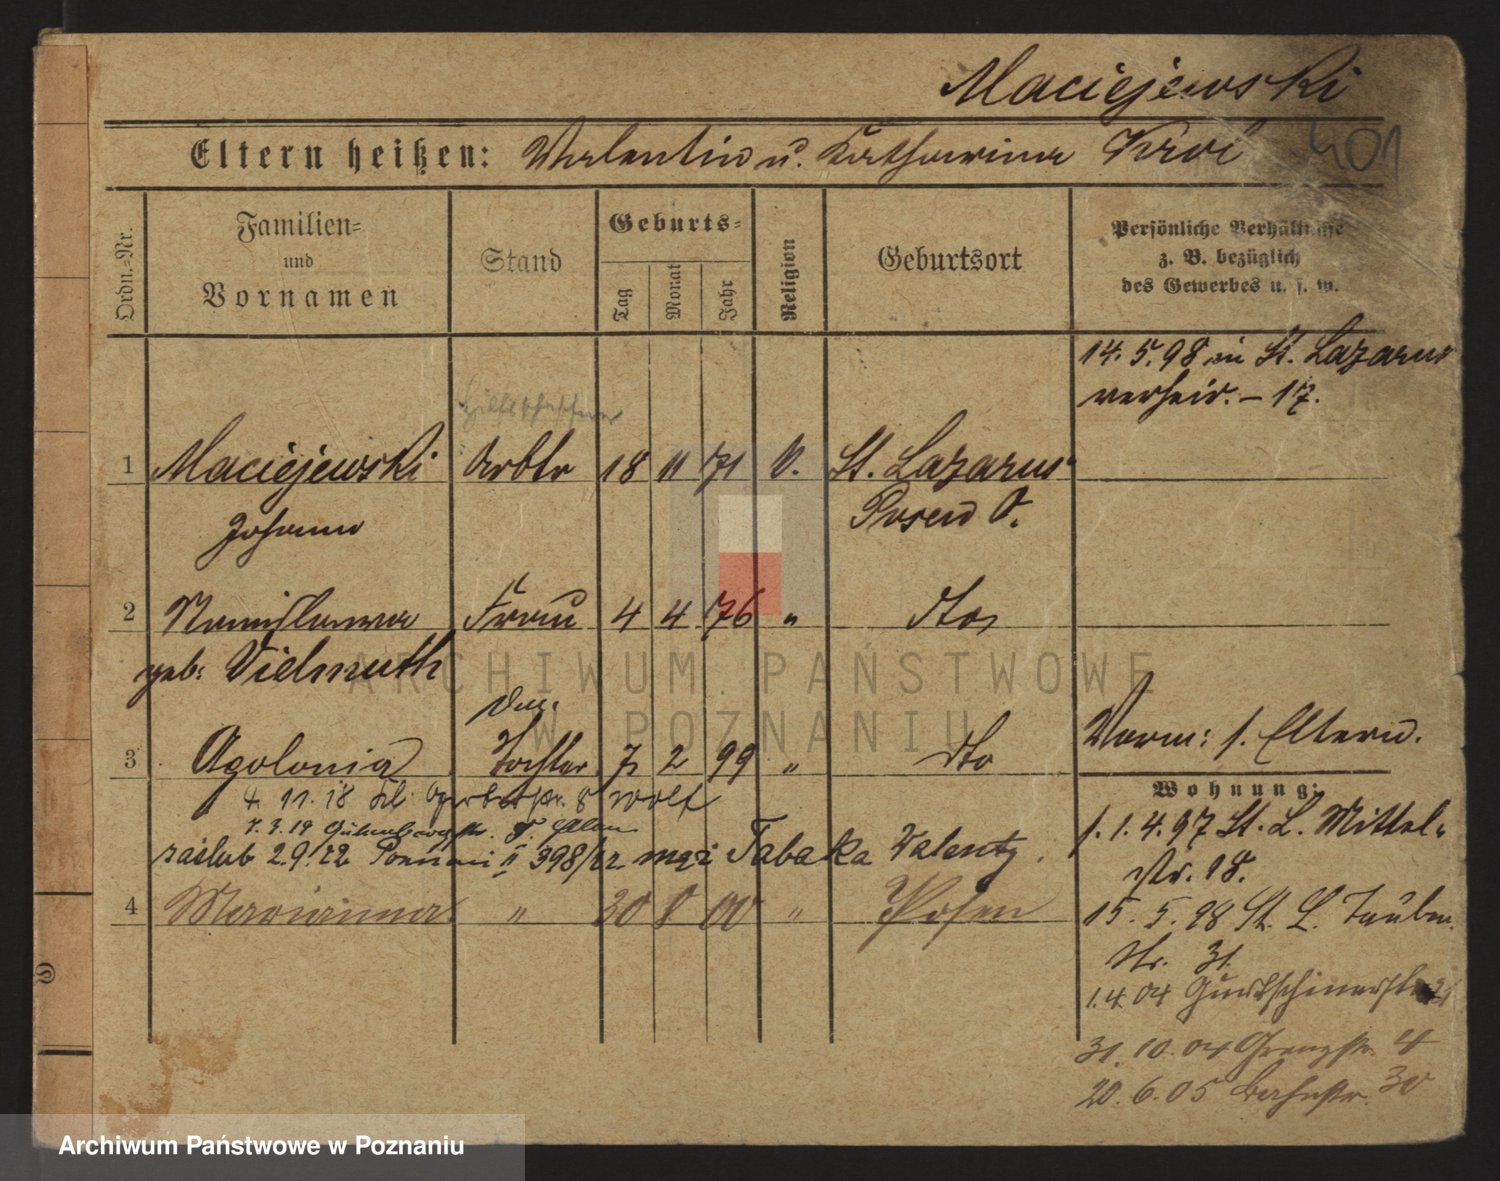 Maciejewski
Eltern heißen: Valentin u. Katharina Krol
401
Ordn.-Nr.
Familien-
und
Vornamen
Stand
Geburts-
Tag
Monat
Jahr
Religion
Geburtsort
Persönliche Verhältnisse
z. B. bezüglich
des Gewerbes u. s. w.
14. 5. 98 in St. Lazarus
verheir. – 17.
1 Maciejewski Arbtr 18 11 71 St. Lazarus
Johann Posen O.
2 Stanislawa Frau 4 4 76 " dto
geb: Vielmuth
3 Apolonia Tochter 7 2 99 " dto
Vorm: s. Eltern.
4. 11. 18 8 Wolf
7. 3. 19
zaślub 2.9.22 Poznań II 398/22 Tabaka Valenty.
4 Marianna " 30 8 00 " Posen
Wohnung:
1. 4. 97 St. L. Mittel-
str. 18.
15. 5. 98 St. L. Tauben
str. 31.
1. 4. 04 Gurtschinerstr
31. 10. 04 Grenzstr. 4
20. 6. 05 Bahnstr. 30
ARCHIWUM PAŃSTWOWE
W POZNANIU
Archiwum Państwowe w Poznaniu